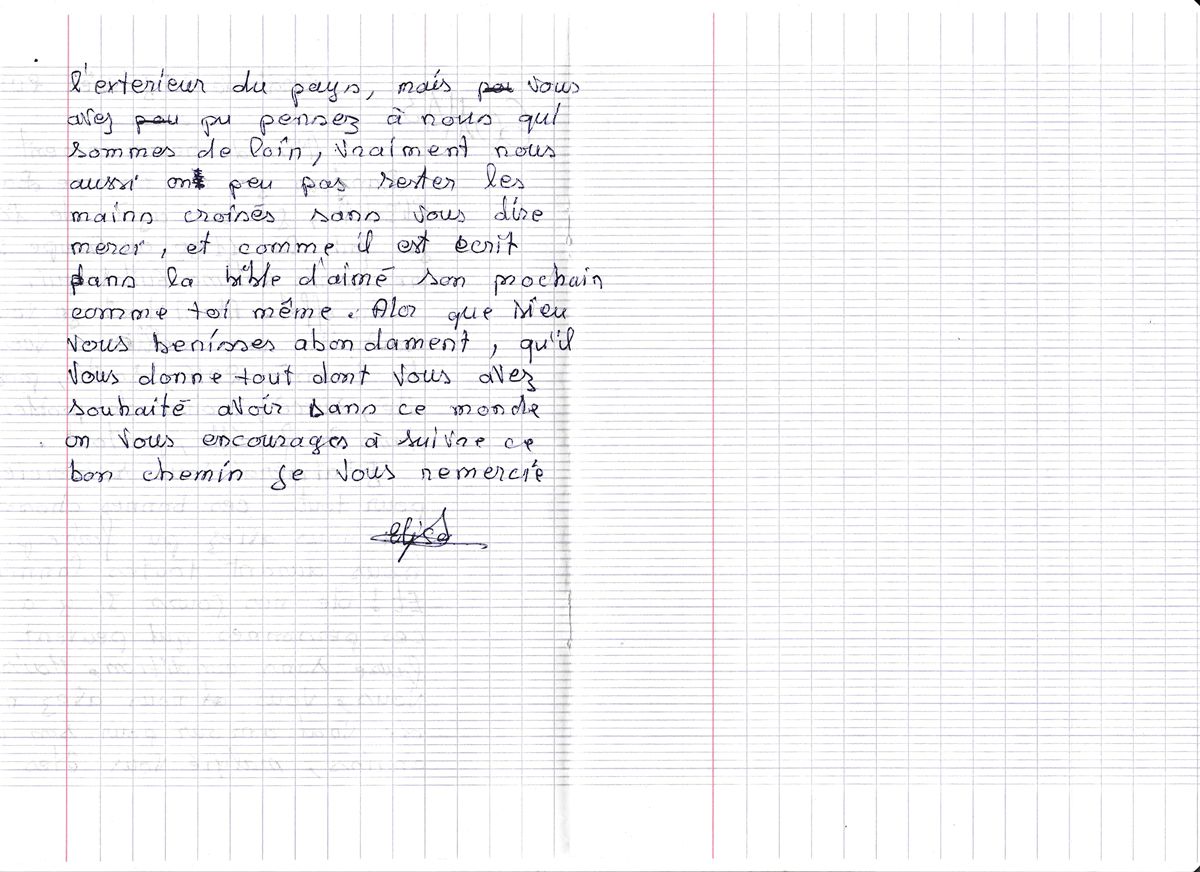 l'exterieur du pays, mais vous
avez pu pensez à nous qui
sommes de loin, vraiment nous
aussi on peu pas rester les
mains croisés sans vous dire
merci, et comme il est ecrit
dans la bible d'aimé son prochain
comme toi même. Alor que Dieu
vous benisses abondament, qu'il
vous donne tout dont vous avez
souhaité avoir dans ce monde
on vous encourages à suivre ce
bon chemin je vous remercie